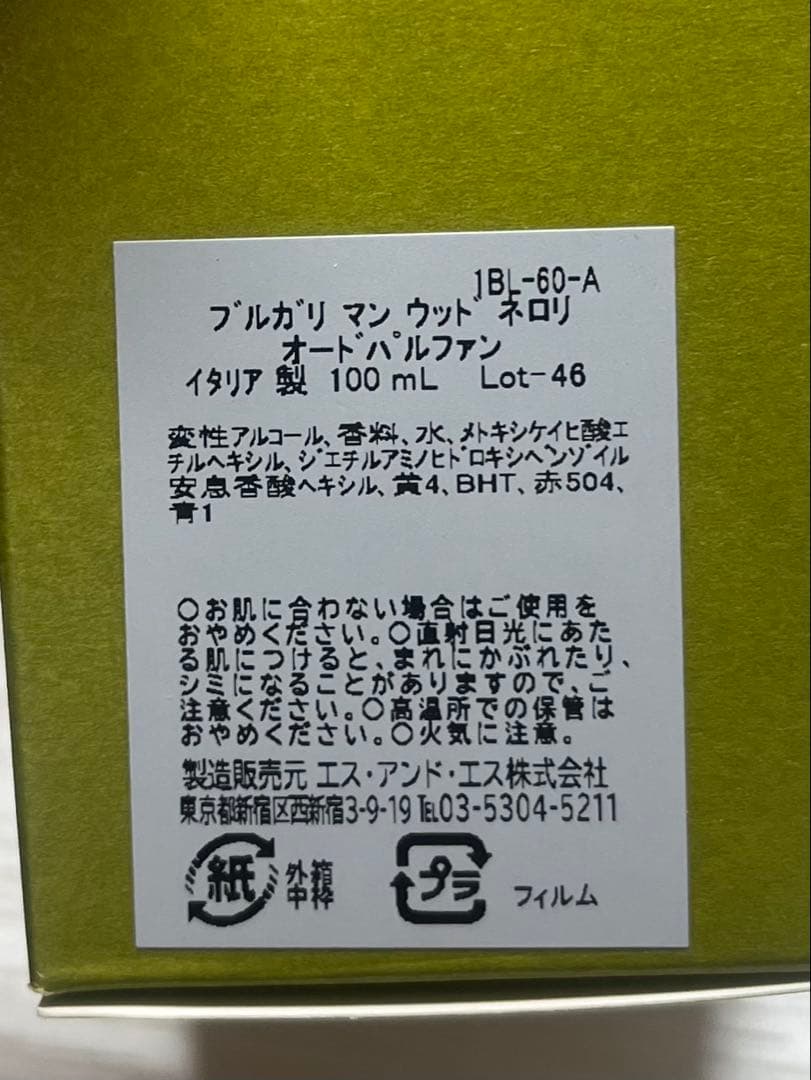 1BL-60-A
ブルガリ マン ウッド ネロリ
オードパルファン
イタリア 製 100 mL Lot-46
変性アルコール、香料、水、メトキシケイヒ酸エ
チルヘキシル、ジエチルアミノヒドロキシベンゾイル
安息香酸ヘキシル、黄4、BHT、赤504、
青1
○お肌に合わない場合はご使用を
おやめください。○直射日光にあた
る肌につけると、まれにかぶれたり、
シミになることがありますので、ご
注意ください。○高温所での保管は
おやめください。○火気に注意。
製造販売元 エス・アンド・エス株式会社
東京都新宿区西新宿3-9-19 TEL03-5304-5211
紙 外箱
中枠
プラ フィルム